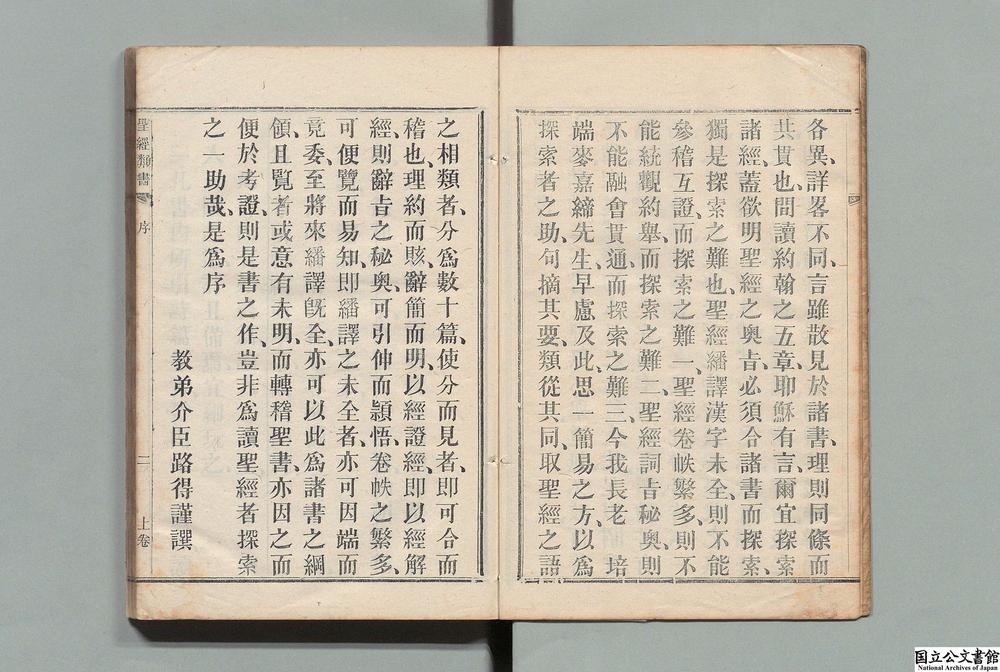 各異、詳畧不同、言雖散見於諸書、理則同條而
共貫也、間讀約翰之五章、耶穌有言、爾宜探索
諸經、蓋欲明聖經之奧旨、必須合諸書而探索、
獨是探索之難也、聖經繙譯漢字未全、則不能
參稽互證、而探索之難一、聖經卷帙繁多、則不
能統觀約舉、而探索之難二、聖經詞旨秘奧、則
不能融會貫通、而探索之難三、今我長老 培
端麥嘉締先生、早慮及此、思一簡易之方、以爲
探索者之助、句摘其要、類從其同、取聖經之語
之相類者、分爲數十篇、使分而見者、即可合而
稽也、理約而賅、辭簡而明、以經證經、即以經解
經、則辭旨之秘奧、可引伸而頴悟、卷帙之繁多、
可便覽而易知、即繙譯之未全者、亦可因端而
竟委、至將來繙譯旣全、亦可以此爲諸書之綱
領、且覽者或意有未明、而轉稽聖書、亦因之而
便於考證、則是書之作、豈非爲讀聖經者探索
之一助哉、是爲序
教弟介臣路得謹譔
聖經類書
序
二
上卷
国立公文書館
National Archives of Japan